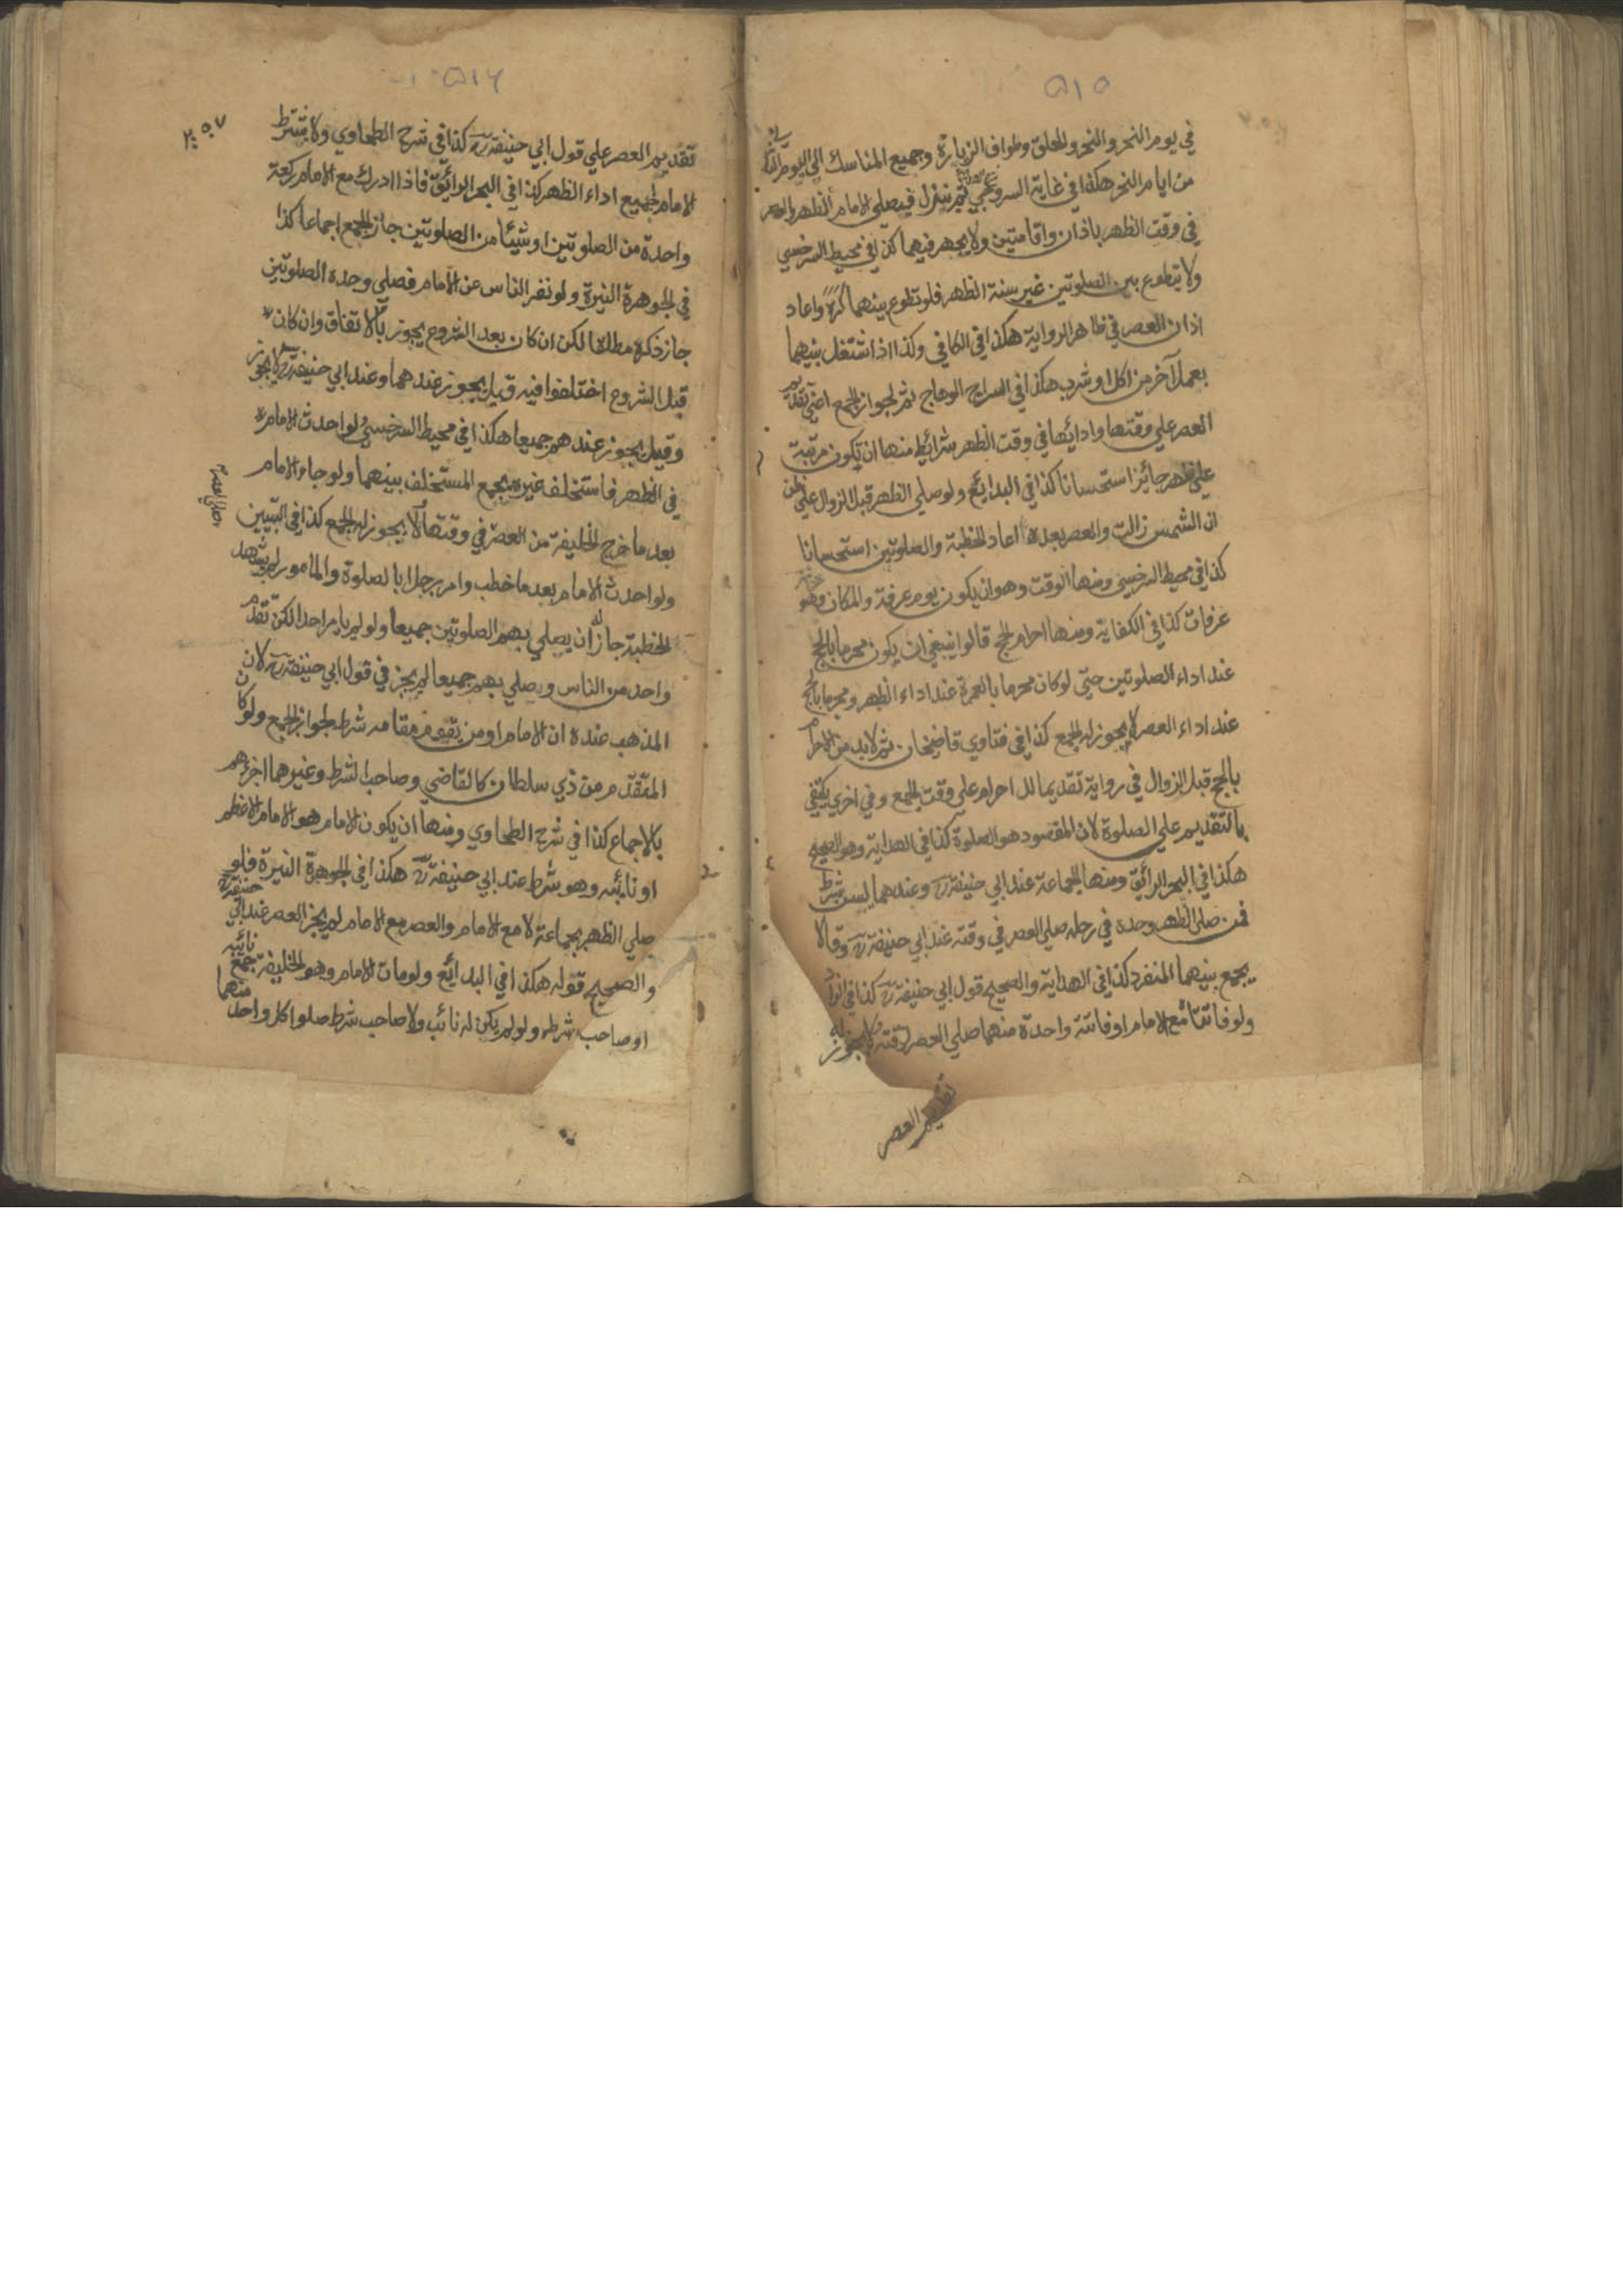 ٥١٥
في يوم النحر والنحر والحلق وطواف الزيارة وجميع المناسك الي اليوم الثاني
من ايام النحر هكذا في غاية السروجي ثم ينزل فيصلي الامام الظهر والعصر
في وقت الظهر باذان واقامتين ولا يجهر فيهما كذا في محيط السرخسي
ولا يتطوع بين الصلوتين غير سنة الظهر فلو تطوع بينهما كره واعاد
اذان العصر في ظاهر الرواية هكذا في الكافي وكذا اذا اشتغل بينهما
بعمل آخر من اكل او شرب هكذا في السراج الوهاج ثم لجواز الجمع اعني تقديم
العصر علي وقتها وادائها في وقت الظهر شرائط منها ان تكون مرتبة
علي ظهر جائز استحسانا كذا في البدائع ولو صلي الظهر قبل الزوال علي ظن
ان الشمس زالت والعصر بعده اعاد الخطبة والصلوتين استحسانا
كذا في محيط السرخسي ومنها الوقت وهو ان يكون يوم عرفة والمكان وهو
عرفات كذا في الكفاية ومنها احرام الحج قالوا ينبغي ان يكون محرما بالحج
عند اداء الصلوتين حتي لو كان محرما بالعمرة عند اداء الظهر ومحرما بالحج
عند اداء العصر لا يجوز له الجمع كذا في فتاوي قاضيخان ثم لا بد من الاحرام
بالحج قبل الزوال في رواية تقديما للاحرام علي وقت الجمع وفي اخري يكتفي
بالتقديم علي الصلوة لان المقصود هو الصلوة كذا في الهداية وهو الصحيح
هكذا في البحر الرائق ومنها الجماعة عند ابي حنيفة رح وعندهما ليست بشرط
فمن صلي الظهر وحده في رحله صلي العصر في وقته عند ابي حنيفة رح وقالا
يجمع بينهما المنفرد كذا في الهداية والصحيح قول ابي حنيفة رح كذا في الزاد
ولو فاتتا مع الامام او فاتته واحدة منهما صلي العصر لوقته ولا يجوز له
تقديم العصر
٥١٦
٢٠٥٧
تقديم العصر علي قول ابي حنيفة رح كذا في شرح الطحاوي ولا يشترط
الامام لجميع اداء الظهر كذا في البحر الرائق فاذا ادرك مع الامام ركعة
واحدة من الصلوتين او شيئا من الصلوتين جاز الجمع اجماعا كذا
في الجوهرة النيرة ولو نفر الناس عن الامام فصلي وحده الصلوتين
جاز ذكره مطلقا لكن ان كان بعد الشروع يجوز بالاتفاق وان كان
قبل الشروع اختلفوا فيه قيل يجوز عندهما وعند ابي حنيفة رح لا يجوز
وقيل يجوز عندهم جميعا هكذا في محيط السرخسي ولو احدث الامام
في الظهر فاستخلف غيره يجمع المستخلف بينهما ولو جاء الامام
بعد ما خرج الخليفة من العصر في وقتها لا يجوز له الجمع كذا في التبيين
وصلي العصر
ولو احدث الامام بعد ما خطب وامر رجلا بالصلوة والمامور لم يشهد
الخطبة جاز له ان يصلي بهم الصلوتين جميعا ولو لم يامر احدا لكن تقدم
واحد من الناس ويصلي بهم جميعا لم يجز في قول ابي حنيفة رح لان
المذهب عنده ان الامام او من يقوم مقامه شرط لجواز الجمع ولو كان
المتقدم من ذي سلطان كالقاضي وصاحب الشرط وغيرهما اجزءهم
بالاجماع كذا في شرح الطحاوي ومنها ان يكون الامام هو الامام الاعظم
او نائبه وهو شرط عند ابي حنيفة رح هكذا في الجوهرة النيرة فلو
صلي الظهر بجماعة لا مع الامام والعصر مع الامام لم يجز العصر عند ابي حنيفة رح
والصحيح قوله هكذا في البدائع ولو مات الامام وهو الخليفة جمع نائبه
او صاحب شرطه ولو لم يكن له نائب ولا صاحب شرط صلوا كل واحد منهما